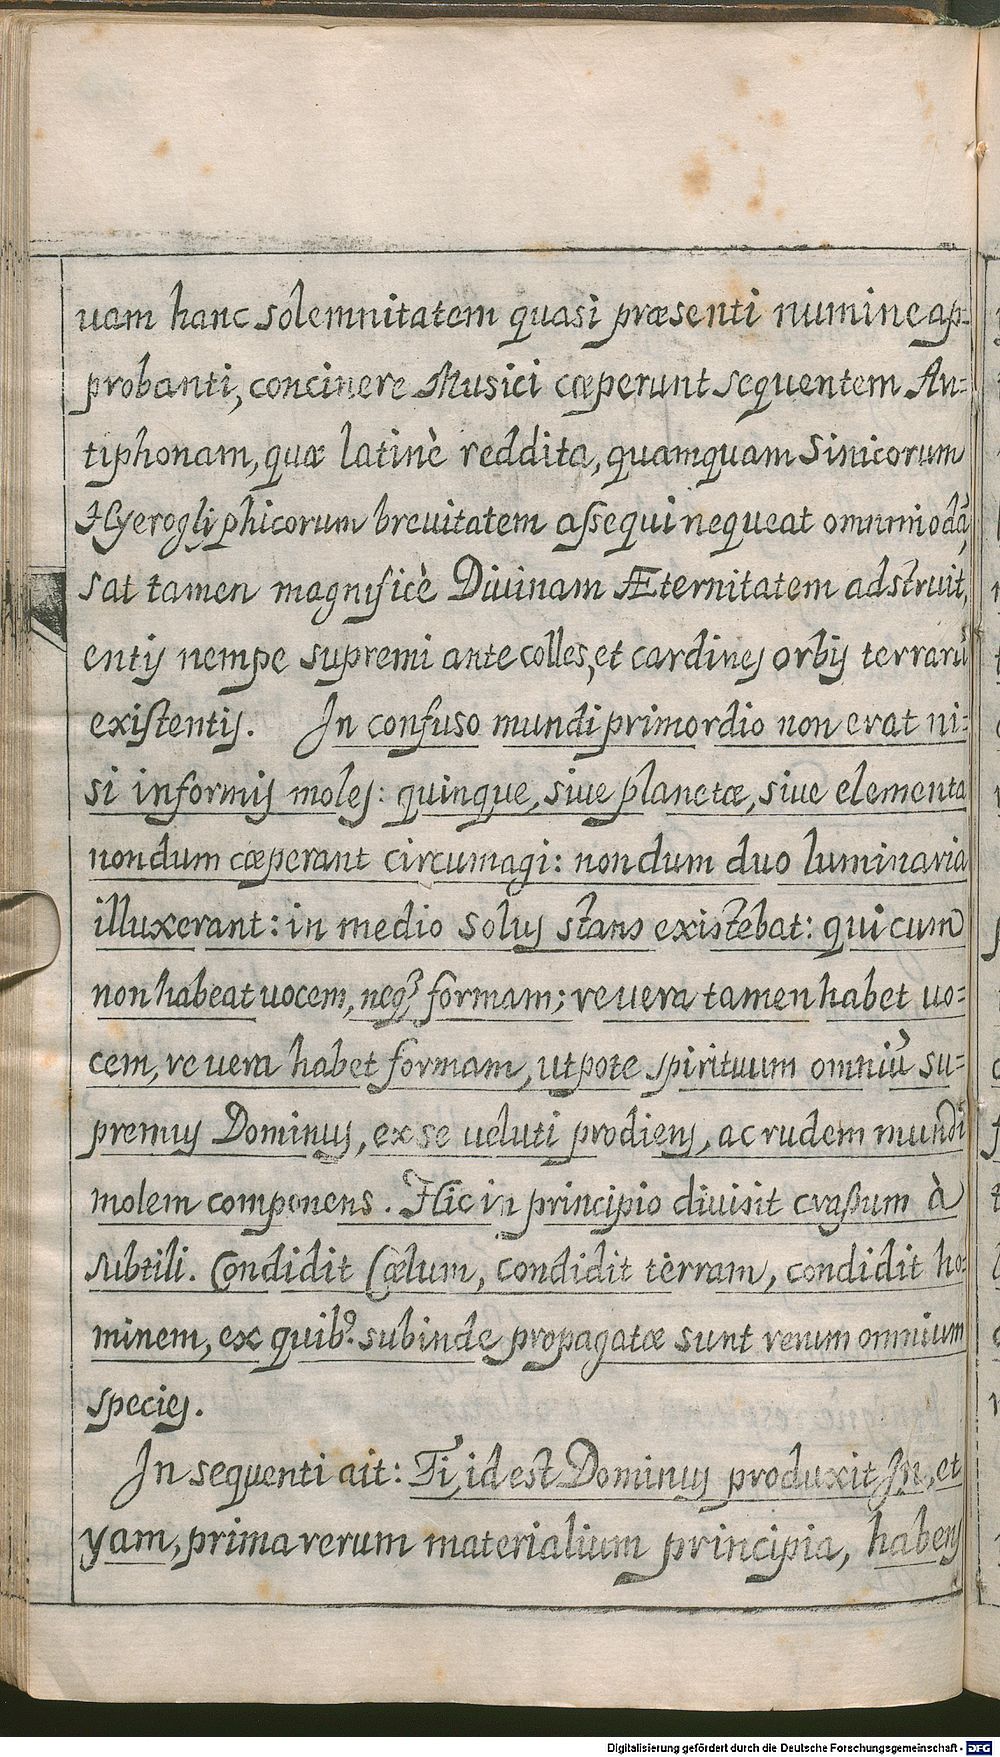 uam hanc solemnitatem quasi præsenti numine ap-
probanti, concinere Musici cæperunt sequentem An=
tiphonam, quæ latinè reddita, quamquam Sinicorum
Hyerogliphicorum breuitatem assequi nequeat omnmiodã,
sat tamen magnificè Diuinam Æternitatem adstruit,
entis nempe supremi ante colles, et cardines orbis terrarũ
existentis. In confuso mundi primordio non erat ni=
si informis moles: quinque, siue planetæ, siue elementa
nondum cæperant circumagi: nondum duo luminaria
illuxerant: in medio solus stans existebat: qui cum
non habeat uocem, neq₃ formam; reuera tamen habet uo=
cem, re uera habet formam, utpote spirituum omniũ su=
premus Dominus, ex se ueluti prodiens, ac rudem mundi
molem componens. Hic in principio diuisit crassum à
subtili. Condidit Cælum, condidit terram, condidit ho=
minem, ex quib⁹ subinde propagatæ sunt rerum omnium
species.
In sequenti ait: Ti, id est Dominus produxit In, et
yam, prima rerum materialium principia, habens
Digitalisierung gefördert durch die Deutsche Forschungsgemeinschaft - DFG